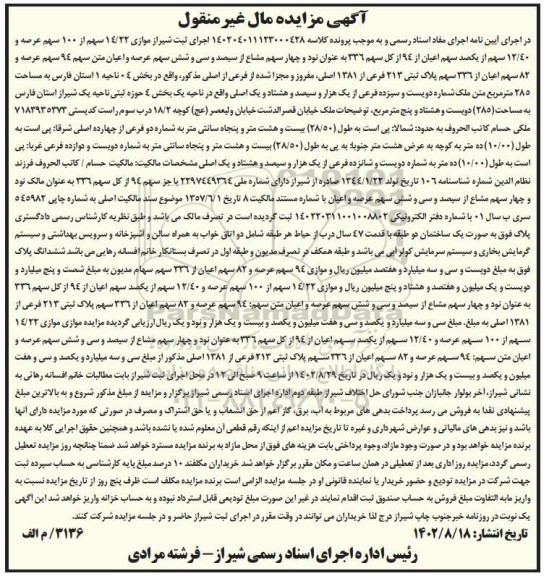 آگهی مزایده مال غیرمنقول
در اجرای آیین نامه اجرای مفاد اسناد رسمی و به موجب پرونده کلاسه ۱۴۰۲۰۴۰۱۱۱۲۳۰۰۰۴۲۸ اجرای ثبت شیراز موازی ۱۴/۲۲ سهم از ۱۰۰ سهم عرصه و
۱۲/۴۰ سهم از یکصد سهم اعیان از ۹۴ از کل سهم ۳۳۶ به عنوان نود و چهار سهم مشاع از سیصد و سی و شش سهم عرصه و اعیان متن سهم ۹۴ سهم عرصه و
۸۲ سهم اعیان از ۳۳۶ سهم پلاک ثبتی ۲۱۳ فرعی از ۱۳۸۱ اصلی، مفروز و مجزا شده از فرعی از اصلی مذکور، واقع در بخش ۰۴ ناحیه ۱ استان فارس به مساحت
۲۸۵ مترمربع متن ملک شماره دویست و سیزده فرعی از یک هزار و سیصد و هشتاد و یک اصلی واقع در ناحیه یک بخش ۴ حوزه ثبتی ناحیه یک شیراز استان فارس
به مساحت (۲۸۵) دویست و هشتاد و پنج مترمربع، توضیحات ملک خیابان قصرالدشت خیابان ولیعصر (عج) کوچه ۱۸/۲ درب سوم راست کدپستی ۷۱۸۳۹۳۵۳۷۳
ملکی حسام کاتب الحروف به حدود: شمالا: پی است به طول (۲۸/۵۰) بیست و هشت متر و پنجاه سانتی متر به شماره دو فرعی از چهارده اصلی شرقا: پی است به
طول (۱۰/۰۰) ده متر به کوچه به عرض هشت متر جنوبا: به پی به طول (۲۸/۵۰) بیست و هشت متر و پنجاه سانتی متر به شماره دویست و دوازده فرعی غربا: پی
است به طول (۱۰/۰۰) ده متر به شماره دویست و شانزده فرعی از یک هزار و سیصد و هشتاد و یک اصلی مشخصات مالکیت: مالکیت حسام / کاتب الحروف فرزند
نظام الدین شماره شناسنامه ۱۰۶ تاریخ تولد ۱۳۴۴/۱/۲۲ صادره از شیراز دارای شماره ملی ۲۲۹۷۴۴۹۳۶۴ با جز سهم ۹۴ از کل سهم ۳۳۶ به عنوان مالک نود
و چهار سهم مشاع از سیصد و سی و شش سهم عرصه و اعیان با شماره مستند مالکیت ۸ تاریخ ۱۳۵۷/۶/۱ موضوع سند مالکیت اصلی به شماره چاپی ۴۵۵۹۸۲
سری ب سال ۰۱ با شماره دفتر الکترونیکی ۱۴۰۲۲۰۳۱۱۰۰۱۰۰۸۸۰۲ ثبت گردیده است در تصرف مالک می باشد و طبق نظریه کارشناس رسمی دادگستری
پلاک فوق به صورت یک ساختمان دو طبقه با قدمت ۴۷ سال درب از حیاط هر طبقه شامل دو اتاق خواب به همراه سالن و آشپزخانه و سرویس بهداشتی و سیستم
گرمایش بخاری و سیستم سرمایش کولر آبی می باشد و طبقه همکف در تصرف مدیون و طبقه اول در تصرف بستانکار خانم افسانه رهایی می باشد ششدانگ پلاک
فوق به مبلغ دویست و سی و سه میلیارد و هفتصد میلیون ریال و موازی ۹۴ سهم عرصه و ۸۲ سهم اعیان از ۳۳۶ سهم سهام مدیون به مبلغ شصت و پنج میلیارد و
دویست و یک میلیون و هفتصد و هشتاد و پنج میلیون ریال و موازی ۱۴/۲۲ سهم از ۱۰۰ سهم عرصه و ۱۲/۴۰ سهم از یکصد سهم اعیان از ۹۴ از کل سهم ۳۳۶
به عنوان نود و چهار سهم مشاع از سیصد و سی و شش سهم عرصه و اعیان متن سهم: ۹۴ سهم عرصه و ۸۲ سهم اعیان از ۳۳۶ سهم پلاک ثبتی ۲۱۳ فرعی از
۱۳۸۱ اصلی به مبلغ. مبلغ سی و سه میلیارد و یکصد و سی و هفت میلیون و یکصد و بیست و یک هزار و نود و یک ریال ارزیابی گردیده مزایده موازی موازی ۱۴/۲۲
سهم از ۱۰۰ سهم عرصه و ۱۲/۴۰ سهم از یکصد سهم اعیان از ۹۴ از کل سهم ۳۳۶ به عنوان نود و چهار سهم مشاع از سیصد و سی و شش سهم عرصه و
اعیان متن سهم: ۹۴ سهم عرصه و ۸۲ سهم اعیان از ۳۳۶ سهم پلاک ثبتی ۲۱۳ فرعی از ۱۳۸۱ اصلی مذکور از مبلغ سی و سه میلیارد و یکصد و سی و هفت
میلیون و یکصد و بیست و یک هزار و نود و یک ریال در تاریخ ۱۴۰۲/۸/۲۹ از ساعت ۹ صبح الی ۱۲ در محل اجرای ثبت شیراز بابت مطالبات خانم افسانه رهائی به
نشانی شیراز، آخر بولوار جانبازان جنب شورای حل اختلاف شیراز طبقه دوم اداره اجرای اسناد رسمی شیراز برگزار و مزایده از مبلغ مذکور شروع و به بالاترین مبلغ
پیشنهادی نقدا به فروش می رسد پرداخت بدهی های مربوط به آب، برق، گاز اعم از حق انشعاب و یا حق اشتراک و مصرف در صورتی که مورد مزایده دارای آنها
باشد و نیز بدهی های مالیاتی و عوارض شهرداری و غیره تا تاریخ مزایده اعم از اینکه رقم قطعی آن معلوم شده یا نشده باشد و همچنین حقوق اجرایی کلا به عهده
برنده مزایده خواهد بود و در صورت وجود مازاد، وجوه پرداختی بابت هزینه های فوق از محل مازاد به برنده مزایده مسترد خواهد شد ضمنا چنانچه روز مزایده تعطیل
رسمی گردد، مزایده روز اداری بعد از تعطیلی در همان ساعت و مکان مقرر برگزار خواهد شد خریداران مکلفند ۱۰ درصد مبلغ پایه کارشناسی به حساب سپرده ثبت
جهت شرکت در مزایده تودیع و حضور خریدار یا نماینده قانونی او در جلسه مزایده الزامی است برنده مزایده مکلف است ظرف پنج روز از تاریخ مزایده نسبت به
واریز مابه التفاوت مبلغ فروش به حساب صندوق ثبت اقدام نمایند در غیر این صورت مبلغ تودیعی قابل استرداد نبوده و به حساب خزانه واریز خواهد شد این آگهی
یک نوبت در روزنامه خبرجنوب چاپ شیراز درج لذا خریداران می توانند در وقت مقرر در اجرای ثبت شیراز حاضر و در جلسه مزایده شرکت کنند.
تاریخ انتشار: ۱۴۰۲/۸/۱۸
۳۱۳۶/م الف
رئیس اداره اجرای اسناد رسمی شیراز - فرشته مرادی